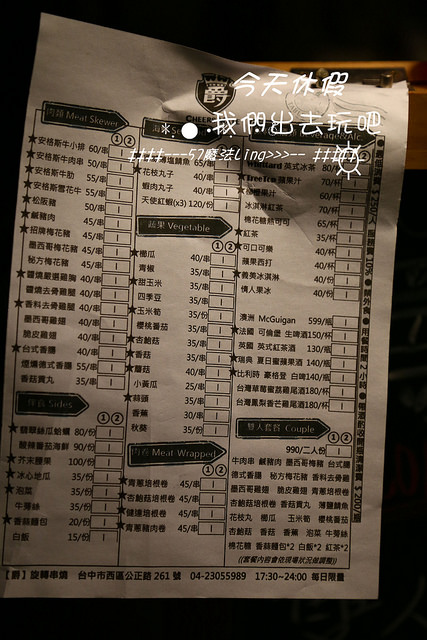 今天休假
爵
CHEER
我們出去玩吧
####----57魔法ling>>>--- ####
肉類 Meat Skewer
① ②
★安格斯牛小排 60/串
★安格斯牛肉串 50/串
★安格斯牛肋 55/串
★安格斯雪花牛 55/串
★松阪豬 50/串
★鹹豬肉 45/串
★招牌梅花豬 45/串
墨西哥梅花豬 45/串
秘方梅花豬 45/串
★鹽燒嚴選雞胸 40/串
鹽燒去骨雞腿 40/串
★香料去骨雞腿 40/串
墨西哥雞翅 40/串
脆皮雞翅 40/串
★台式香腸 40/串
煙燻德式香腸 55/串
香菇貢丸 35/串
Sides
① ②
80/份
酸辣番茄海鮮 90/份
★芥末腰果 100/份
★冰心地瓜 35/份
★泡菜 35/份
牛蒡絲 35/份
★香蒜麵包 20/份
白飯 15/份
塩鯖魚 65/串
★花枝丸子 40/串
蝦肉丸子 40/串
天使紅蝦(x3) 120/份
蔬果 Vegetable
① ②
★櫛瓜 40/串
青椒 35/串
★甜玉米 35/串
四季豆 35/串
★玉米筍 35/份
櫻桃番茄 35/串
★杏鮑菇 35/串
★香菇 35/串
★蘑菇 40/串
小黃瓜 25/串
★蒜頭 35/串
香蕉 30/串
秋葵 35/份
肉卷 Meat Wrapped
① ②
★青蔥培根卷 45/串
★杏鮑菇培根卷 45/串
★健達培根卷 45/串
★青蔥豬肉卷 45/串
Beverage&Alc.
Whittard 英式冰茶 80/杯
★TreeTop 蘋果汁 70/杯
柳橙果汁 60/杯
冰淇淋紅茶 70/杯
棉花糖熱可可 65/杯
★紅茶 35/杯
★可口可樂 40/杯
蘋果西打 40/杯
★義美冰淇淋 40/份
情人果冰 40/份
澳洲 McGuigan 599/瓶
★法國 可倫堡 生啤酒150/杯
英國 英式紅茶酒 130/瓶
★瑞典 夏日蜜蘋果酒 140/瓶
★比利時 豪格登 白啤140/瓶
台灣草莓蜜荔雞尾酒180/杯
台灣鳳梨香芒雞尾酒180/杯
雙人套餐 Couple
① ②
990/二人份
牛肉串 鹹豬肉 墨西哥梅豬 台式腸
德式香腸 秘方梅花豬 香料去骨雞
墨西哥雞翅 脆皮雞翅 青蔥培根卷
杏鮑菇培根卷 香菇貢丸 薄鹽鯖魚
花枝丸 櫛瓜 玉米筍 櫻桃番茄
杏鮑菇 香菇 香蕉 泡菜 牛蒡絲
棉花糖 香蒜麵包*2 白飯*2 紅茶*2
((套餐內容會依現場狀況做調整))
【爵】旋轉串燒 台中市西區公正路 261 號 04-23055989 17:30~24:00 每日限量